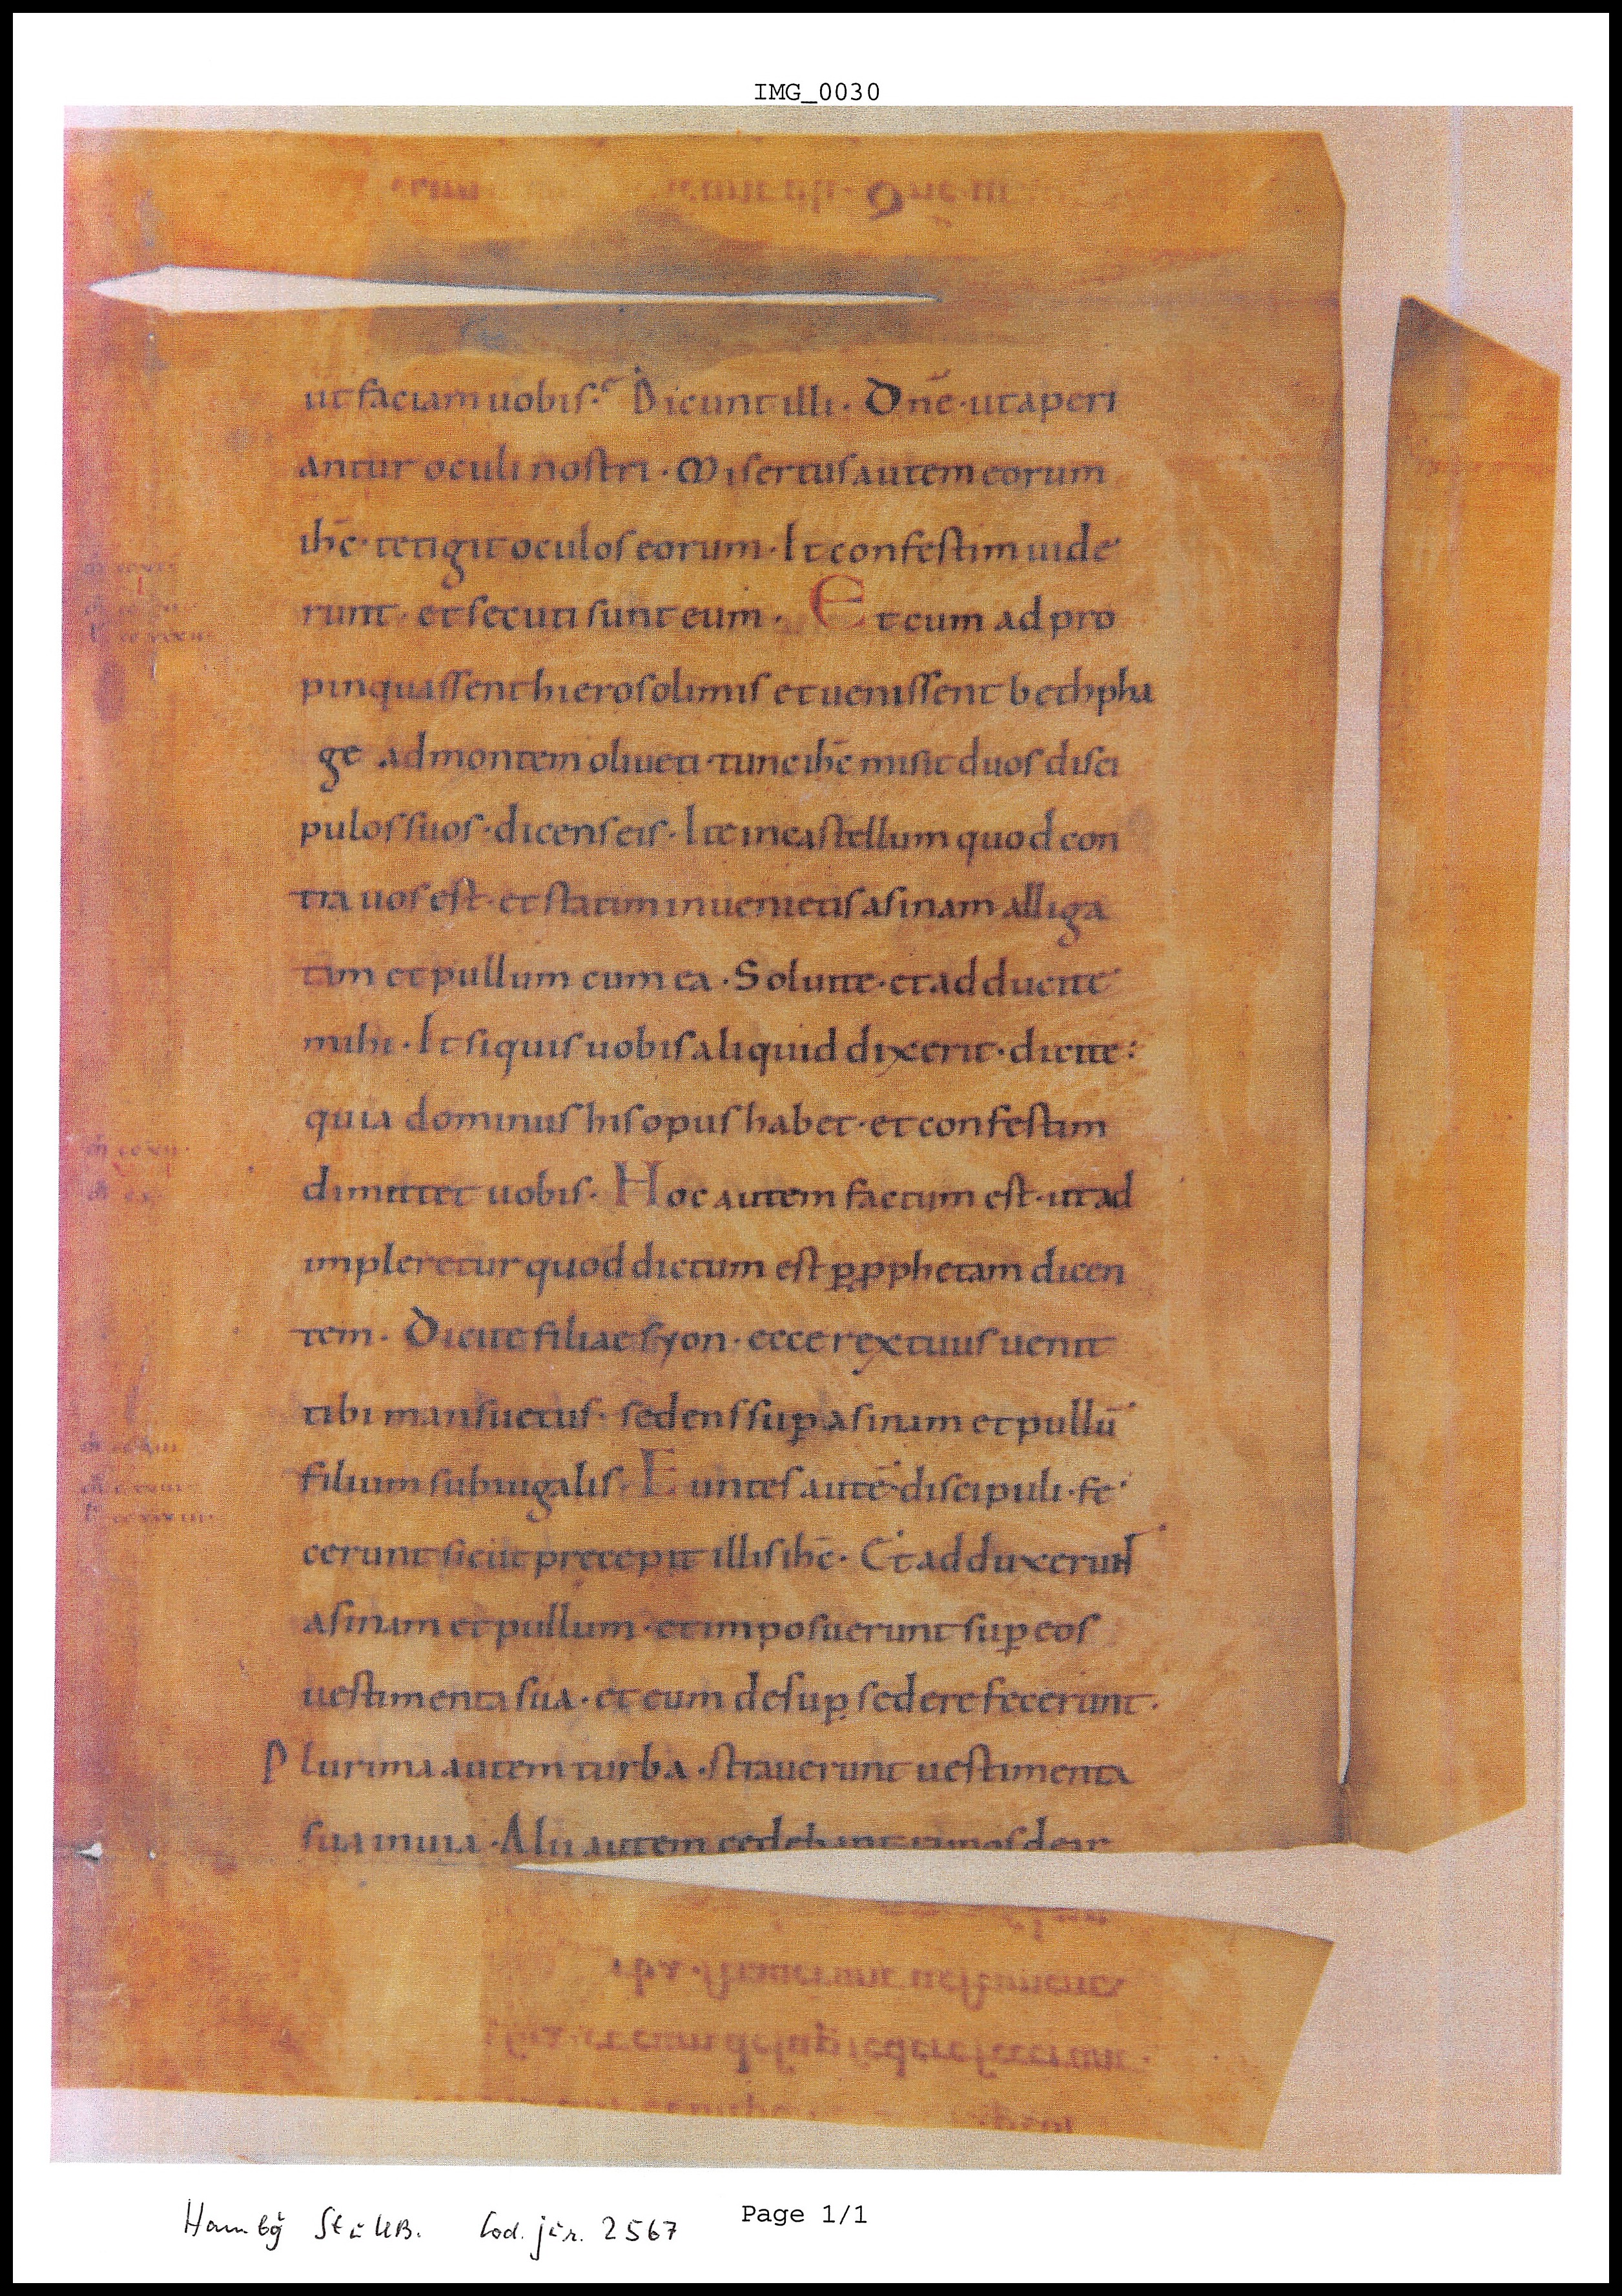 IMG_0030
ut faciam uobis· Dicunt illi· Dn̄e· ut aperi
antur oculi nostri· Misertus autem eorum
ih̄c· tetigit oculos eorum· Et confestim uide
runt· et secuti sunt eum· Et cum ad pro
pinquassent hierosolimis et uenissent bethpha
ge ad montem oliueti· tunc ih̄c misit duos disci
pulos suos· dicens eis· Ite in castellum quod con
tra uos est· et statim inuenietis asinam alliga
tam et pullum cum ea· Soluite· et adducite
mihi· Et siquis uobis aliquid dixerit· dicite:
quia dominus his opus habet· et confestim
dimittet uobis· Hoc autem factum est· ut ad
impleretur quod dictum est ꝑ ꝓphetam dicen
tem· Dicite filiae syon· ecce rex tuus uenit
tibi mansuetus· sedens suꝑ asinam et pullū
filium subiugalis· Euntes autē discipuli· fe
cerunt sicut precepit illis ih̄c· Et adduxerunt
asinam et pullum· et imposuerunt suꝑ eos
uestimenta sua· et eum desuꝑ sedere fecerunt·
Plurima autem turba· strauerunt uestimenta
sua in uia· Alii autem cedebant ramos de ar
Page 1/1
Hambg StUB. Cod. jur. 2567